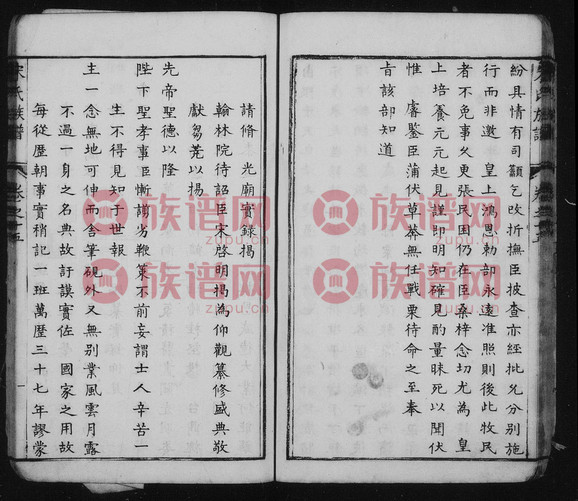 紛具情有司籲乞改折撫臣披查亦經批允分别施
行而非邀　皇上鴻恩勅部永遠准照則後此牧民
者不免事久更張民困仍在臣桑梓念切尤為　皇
上培養元元起見謹即明知確見酌量昧死以聞伏
惟　睿鑒臣蒲伏草莽無任戰栗待命之至奉
旨該部知道
請修　光廟實錄揭
翰林院待詔臣宋啓明揭為仰觀纂修盛典敬
獻芻蕘以揚
先帝聖德以隆
陛下聖孝事臣慚謭劣鞭策不前妄謂士人辛苦一
生不得見知于世報
主一念無地可伸而舍筆硯外又無别業風雲月露
不過一身之名典故訏謨實佐　國家之用故
每從歷朝事實稍記一班萬歷三十七年謬蒙
宋氏族譜
卷之十五
族谱网
zupu.cn
族谱网
zupu.cn
族谱网
zupu.cn
族谱网
zupu.cn